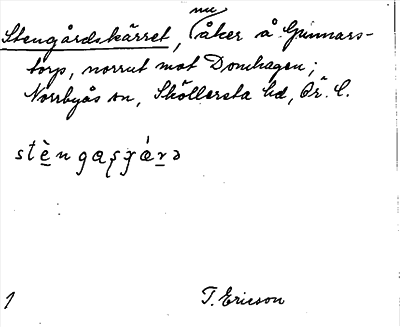 nu
Stengårdskärret, åker å Gunnars-
torp, norrut mot Domhagen;
Norrbyås sn, Sköllersta hd, Ör. l.
stèngaʂɣá̱rə
1 T. Ericson